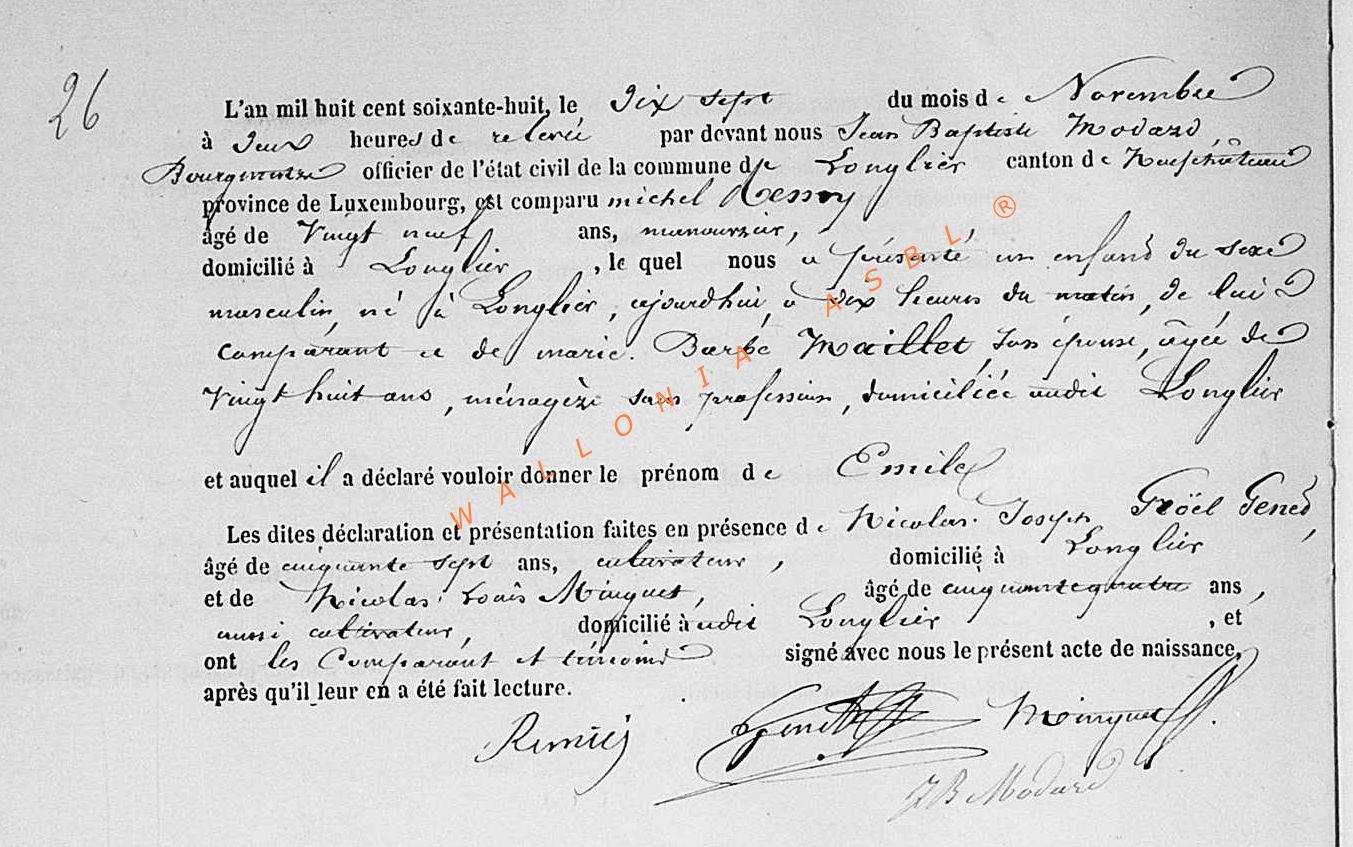 26
L'an mil huit cent soixante-huit, le Dix sept du mois de Novembre
à Deux heures de relevé par devant nous Jean Baptiste Modard,
Bourgmestre officier de l'état civil de la commune de Longlier canton de Neufchâteau
province de Luxembourg, est comparu michel
âgé de Vingt neuf ans, manouvrier,
domicilié à Longlier, le quel nous a présenté un enfand du sexe
masculin, né à Longlier, ajourdhui, à dix heures du matin, de lui
comparant et de marie. Barbe Maillet, son épouse, âgée de
Vingt huit ans, ménagère sans profession, domiciliée audit Longlier
et auquel il a déclaré vouloir donner le prénom de Emile
Les dites déclaration et présentation faites en présence de Nicolas. Joseph Groël Gened,
âgé de cinquante sept ans, cultivateur, domicilié à Longlier
et de Nicolas Louis Minguet, âgé de cinquantequatre ans,
aussi cultivateur, domicilié à udit Longlier, et
ont les Comparant et témoins signé avec nous le présent acte de naissance,
après qu'il leur en a été fait lecture.
Minguet
JB Modard
WALLONIA ASBL ®